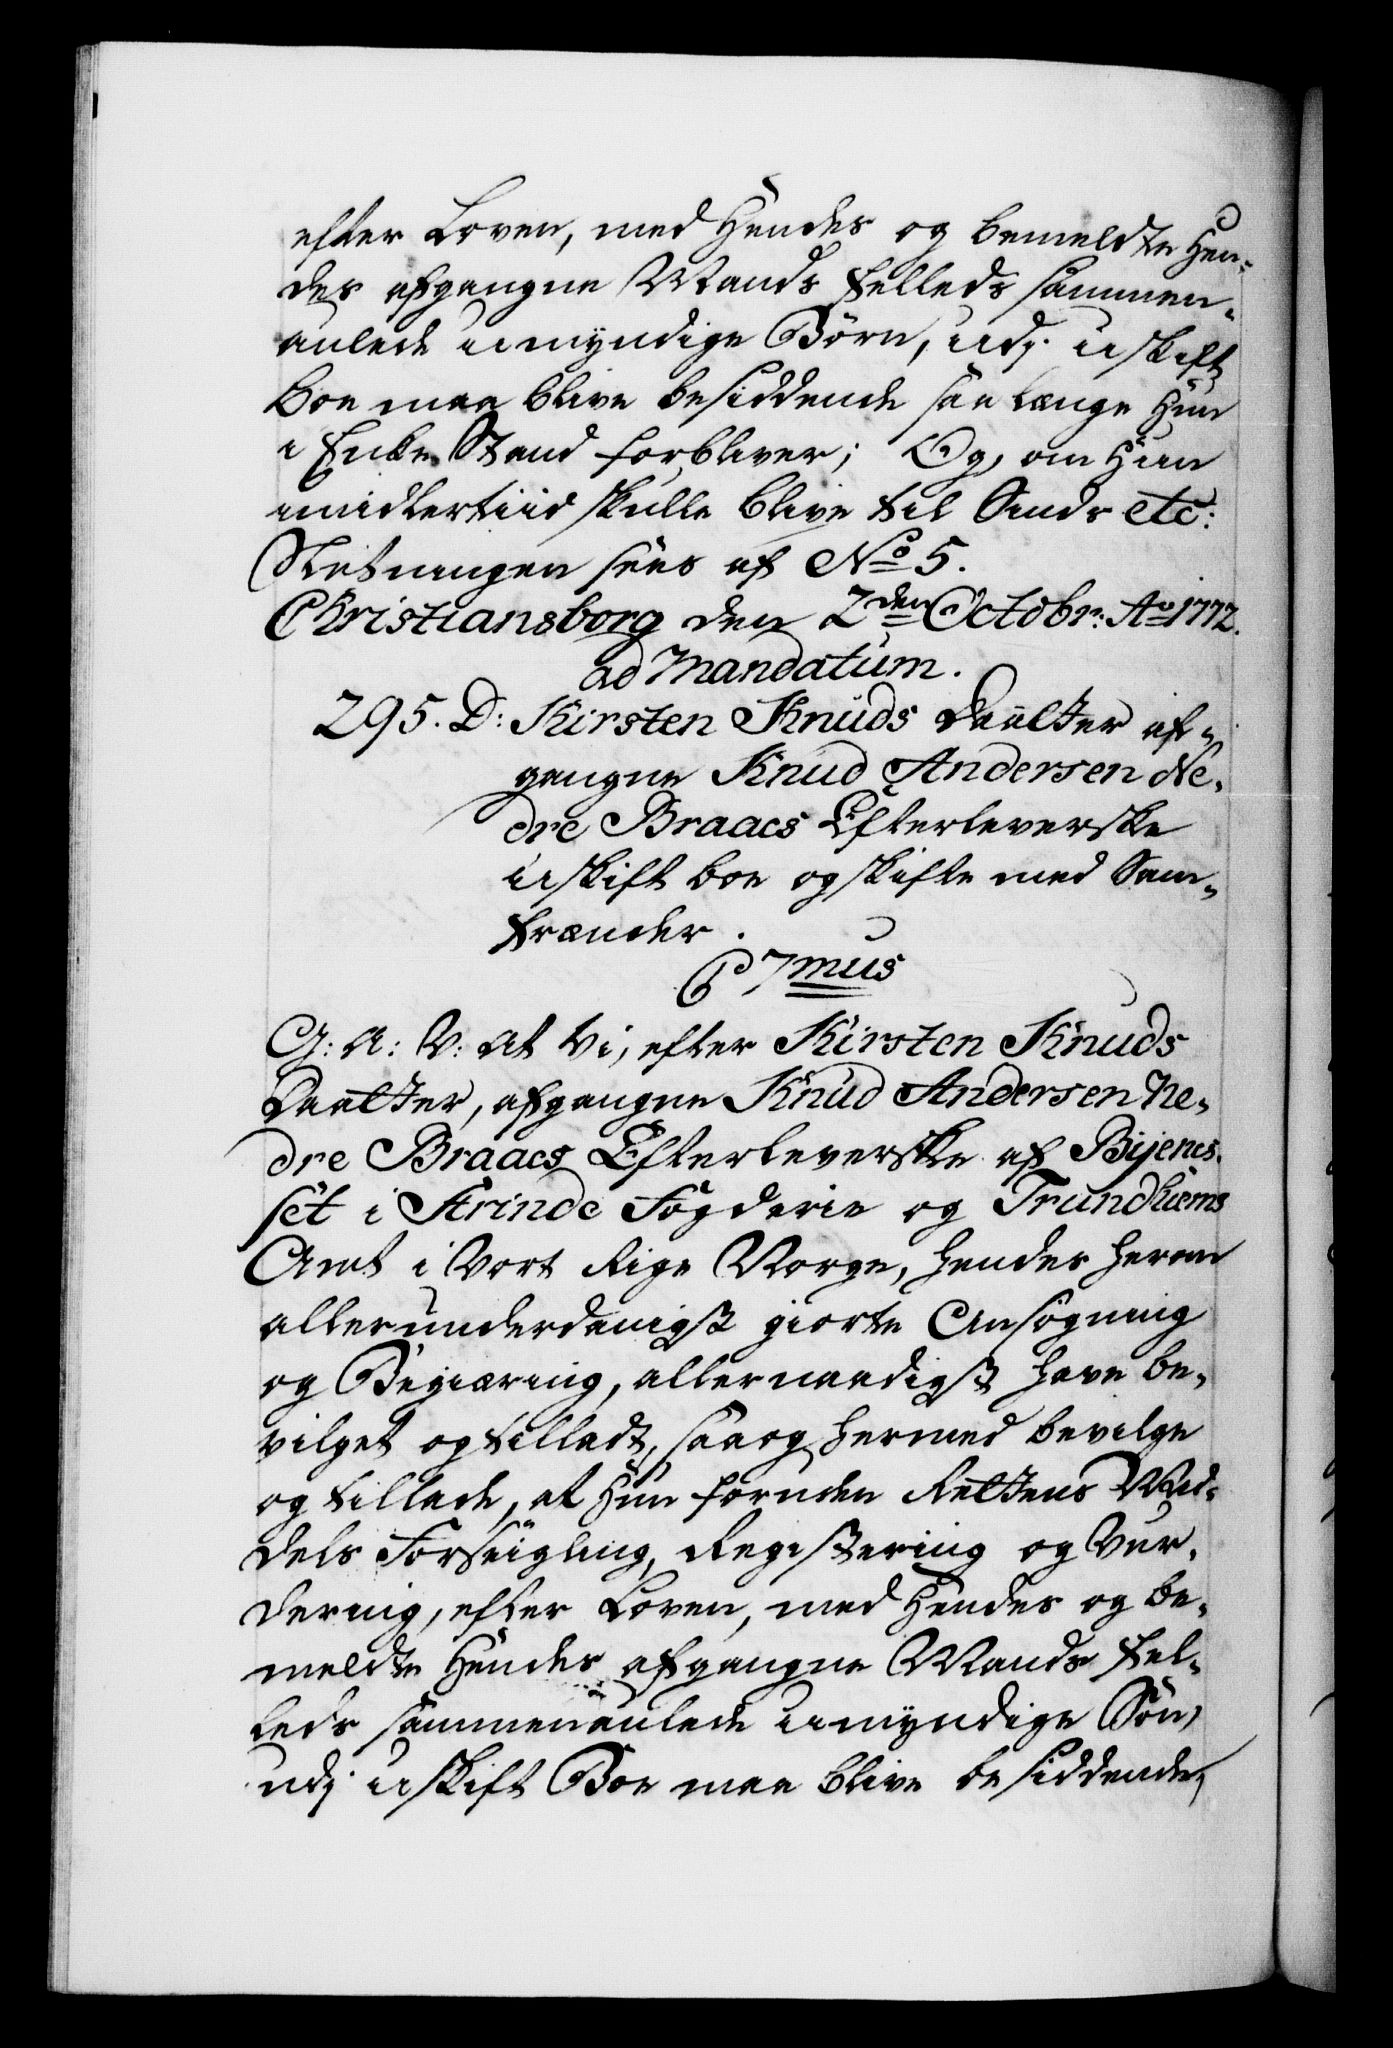 efter Loven, med Hendes og bemeldte Hen-
des afgangne Mands felleds sammen-
aulede umyndige Börn, udj uskift
Boe maa blive besiddende saa længe Hun
i Enke Stand forbliver; Og, om Hun
imidlertiid skulle blive til Sinds etc:
Slutningen sees af No 5.
Christiansborg den 2den Octobr: Ao 1772.
ad Mandatum.
295. D: Kirsten Knuds Daatter af-
gangne Knud Andersen Ne-
dre Braaes Efterleverske
uskift boe og skifte med Sam-
frænder.
C 7mus
G: A: V: At Vi, efter Kirsten Knuds
Daatter, afgangne Knud Andersen Ne-
dre Braaes Efterleverske af Bijenes-
set i Strinde Fögderie og Trundhiems
Amt i Vort Rige Norge, hendes herom
allerunderdanigst giorte Ansögning
og Begiæring, allernaadigst have be-
vilget og tilladt, saa og hermed bevilge
og tillade, at Hun foruden Rettens Mid-
dels Forseigling, Registering og Vur-
dering, efter Loven, med Hendes og be-
meldte Hendes afgangne Mands fel-
leds sammenaulede umyndige Sön,
udj uskift Boe maa blive besiddende,